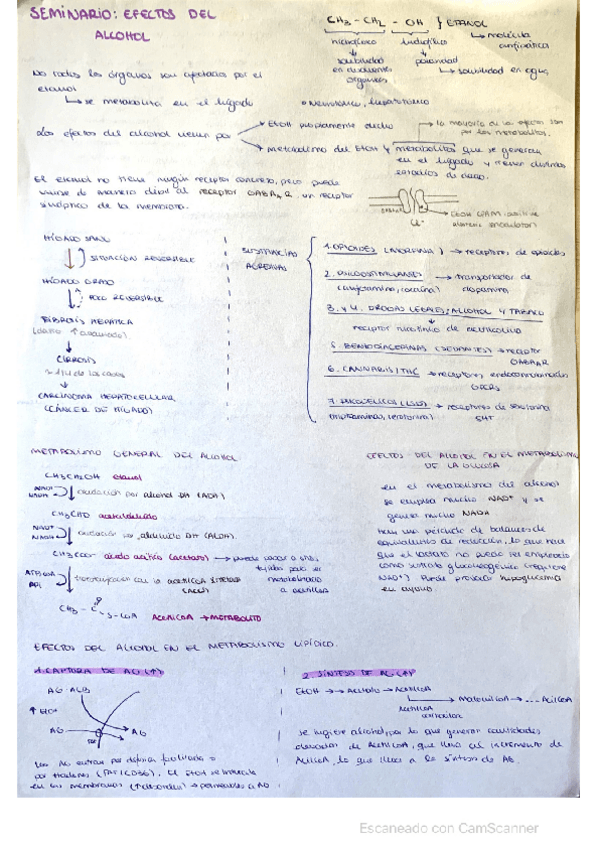 SEMINARIO: EFECTOS DEL
ALCOHOL
CH3 - CH2 - OH } ETANOL
hidrofílico
molécula
solubilidad
polaridad
en disolventes
orgánicos
solubilidad en agua
No todos los órganos son afectados por el
etanol
se metaboliza en el hígado
Los efectos del alcohol vienen por
EtOH propiamente dicho
la mayoría de los efectos son
por los metabolitos.
Metabolismo del EtOH y metabolitos que se generan
en el hígado y tienen distintos
El etanol no tiene ningún receptor concreto, pero puede
unirse de manera al receptor GABAAR, un receptor
de la membrana.
Cl-
HÍGADO SANO
SITUACIÓN REVERSIBLE
HÍGADO GRASO
POCO REVERSIBLE
FIBROSIS HEPÁTICA
CIRROSIS
CARCINOMA HEPATOCELULAR
(CÁNCER DE HÍGADO)
SUSTANCIAS
ADICTIVAS
1. OPIOIDES (MORFINA) → receptores de opioides
2. PSICOESTIMULANTES → transportador de
dopamina
3. y 4. DROGAS LEGALES: ALCOHOL Y TABACO
receptor nicotínico de
5. BENZODIACEPINAS (SEDANTES) → receptor
GABAAR
6. CANNABIS: THC → receptores endocannabinoides
GPCRs
7. PSICODÉLICOS (LSD) → receptores de serotonina
5HT
METABOLISMO GENERAL DEL ALCOHOL
CH3CH2OH etanol
NAD+
NADH
oxidación por alcohol DH (ADH)
CH3CHO acetaldehído
NAD+
NADH
oxidación por aldehído DH (ALDH).
CH3COO- ácido acético (acetato) → puede pasar a otros
tejidos para ser
metabolizado
a acetilCoA
CH3 - C - S-CoA ACETILCOA → METABOLITO
EFECTOS DEL ALCOHOL EN EL METABOLISMO
DE LA GLUCOSA
en el metabolismo del alcohol
se emplea mucho NAD+ y se
genera mucho NADH
hay una pérdida de balances de
equivalentes de reducción, lo que hace
que el lactato no puede ser empleado
como sustrato gluconeogénico (requiere
NAD+). Puede provocar hipoglucemia
en ayuno
EFECTOS DEL ALCOHOL EN EL METABOLISMO LIPÍDICO.
1. CAPTURA DE AG (↑)
AG-ALB
↑ EtOH
AG
AG
Los AG entran por difusión facilitada o
por (FAT/CD36). El EtOH se
en las membranas → permeables a AG
2. SÍNTESIS DE AG (↑)
EtOH → → Acetato → AcetilCoA
AcetilCoA
carboxilasa
MalonilCoA → ... AcilCoA
Se ingiere alcohol, por lo que generan cantidades
elevadas de AcetilCoA, que lleva al incremento de
AcilCoA, lo que lleva a la síntesis de AG.
Escaneado con CamScanner